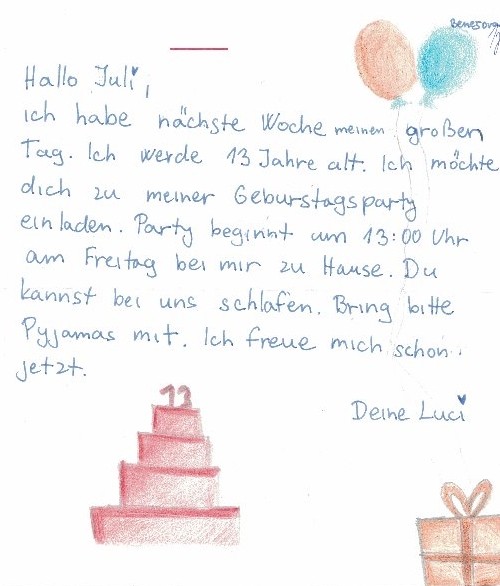 Hallo Juli,
ich habe nächste Woche meinen großen
Tag. Ich werde 13 Jahre alt. Ich möchte
dich zu meiner Geburstagsparty
einladen. Party beginnt um 13:00 Uhr
am Freitag bei mir zu Hause. Du
kannst bei uns schlafen. Bring bitte
Pyjamas mit. Ich freue mich schon
jetzt.
13
Deine Luci